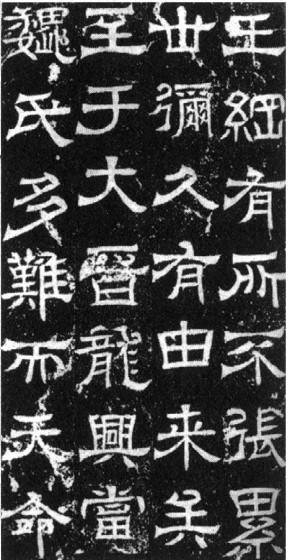 王綱有所不張累
世彌久有由来矣
至于大晉龍興當
魏氏多難而天命